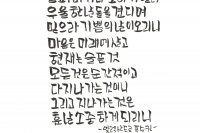 우울한 날들을 견디며
믿으라 기쁨의 날이 오리니
마음은 미래에 사는 것
현재는 슬픈 것
모든 것은 순간적이고
다 지나가는 것이니
그리고 지나가는 것은
훗날 소중하게 되리니